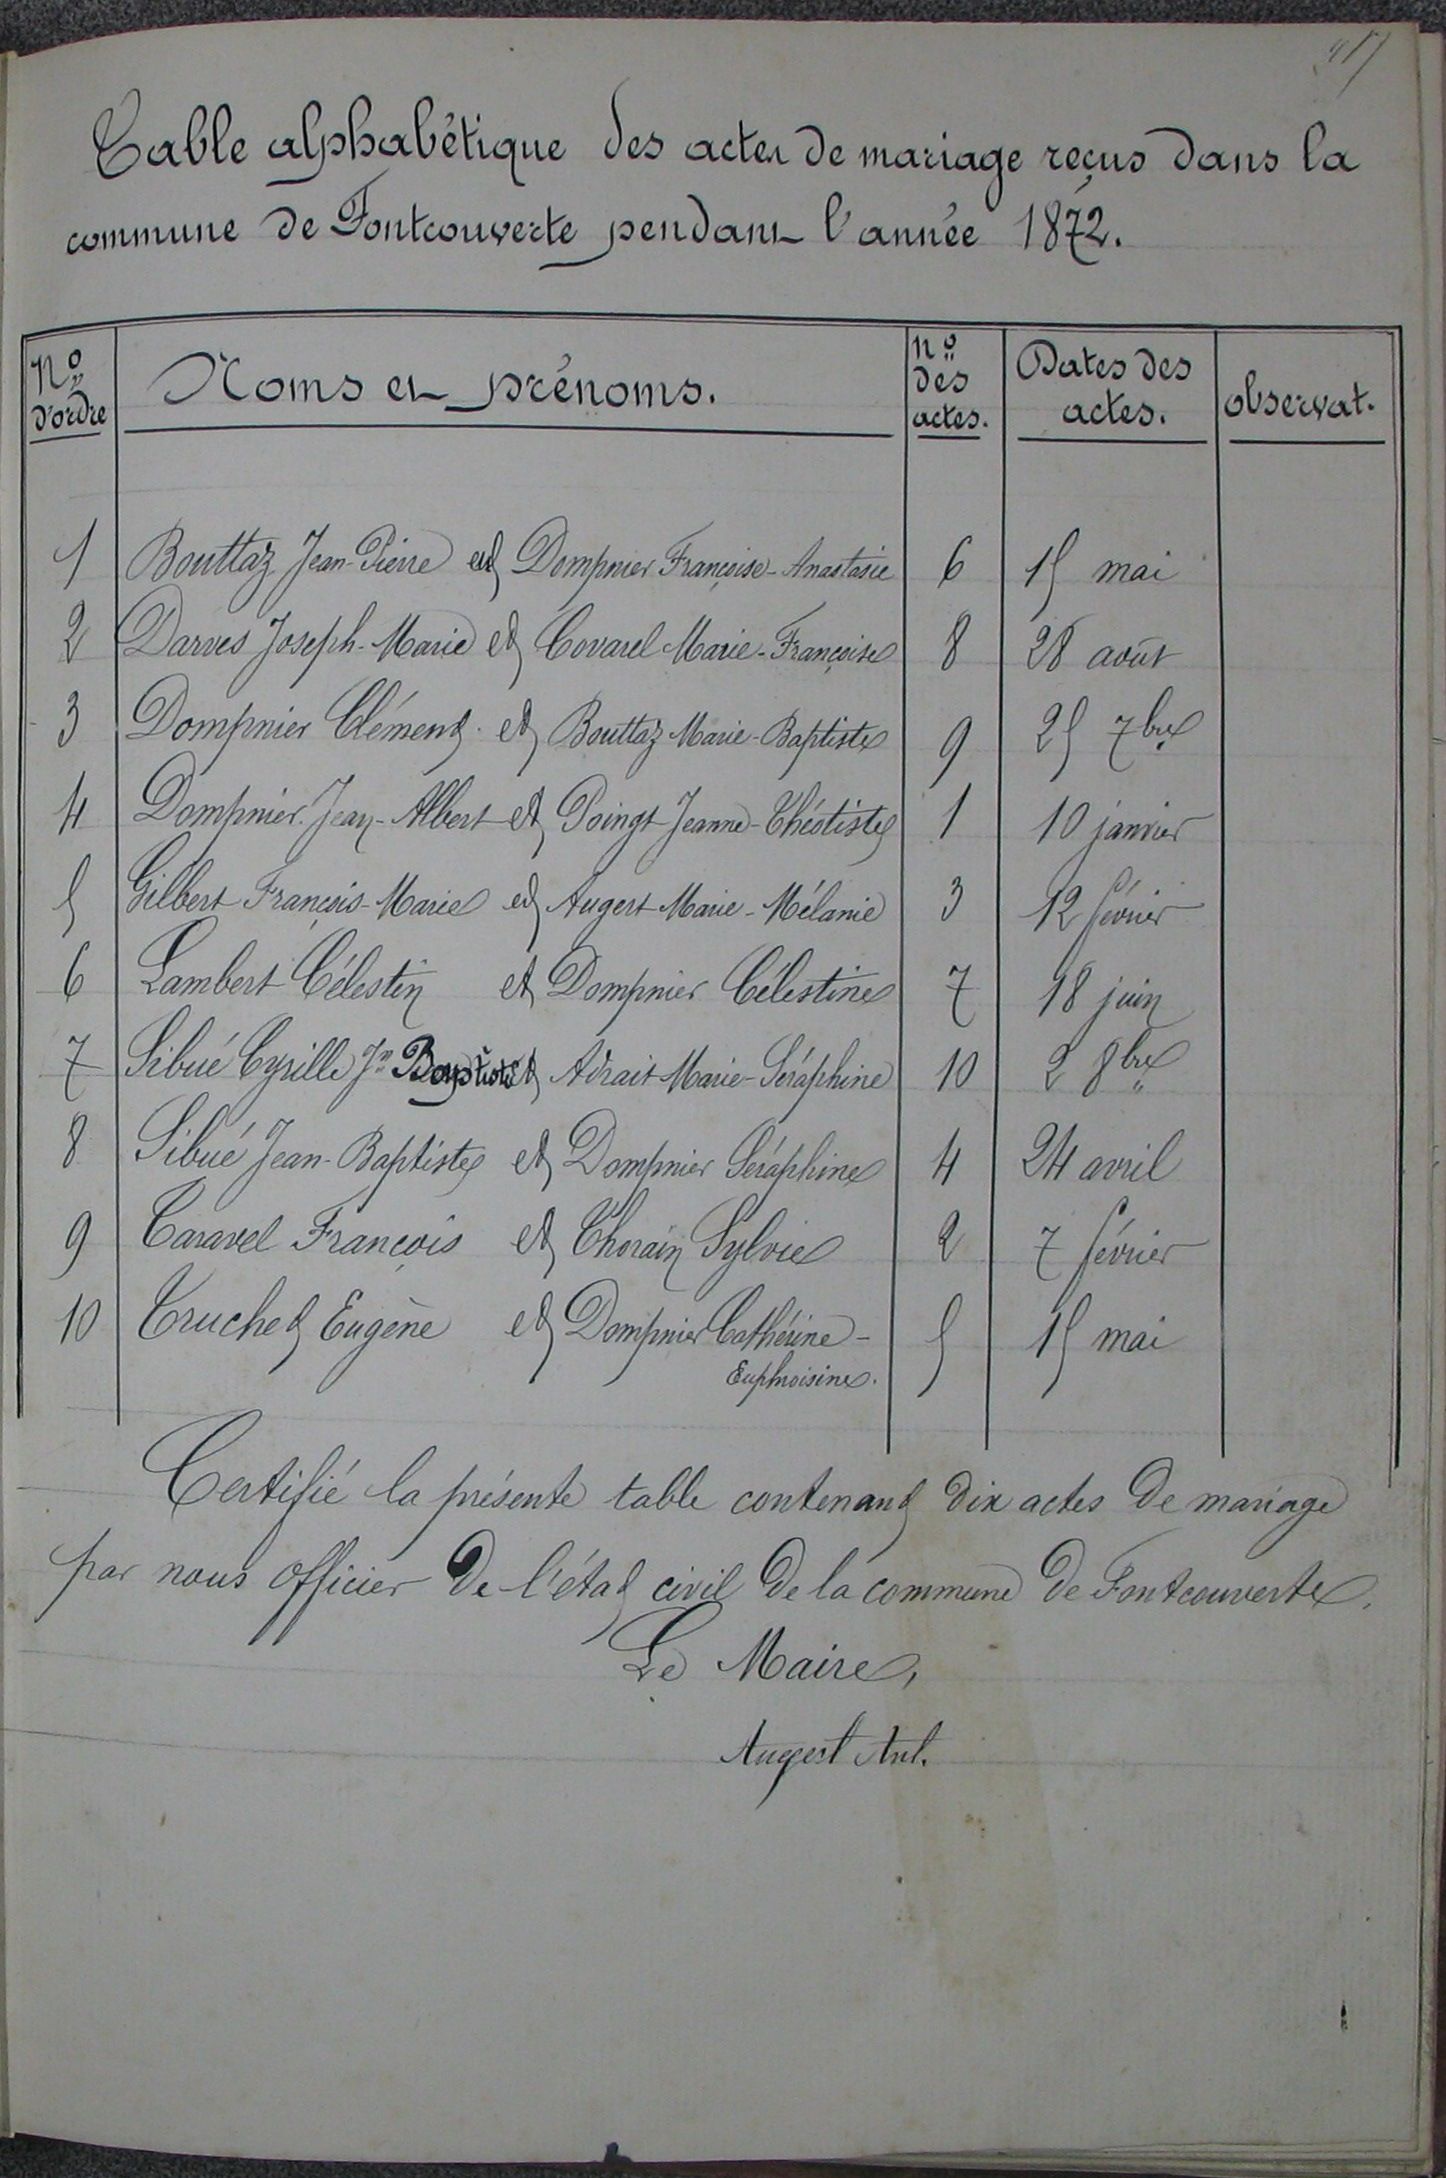 Table alphabétique des actes de mariage reçus dans la
commune de Fontcouverte pendant l'année 1872.
No d'ordre Noms et prénoms. No des actes. Dates des actes. observat.
1 Bouttaz Jean-Pierre et Dompnier Françoise-Anastasie 6 15 mai
2 Darves Joseph-Marie et Covarel Marie-Françoise 8 28 août
3 Dompnier Clément et Bouttaz Marie-Baptiste 9 25 7bre
4 Dompnier Jean-Albert et Poingt Jeanne-Théotiste 1 10 janvier
5 Gilbert François-Marie et Augert Marie-Mélanie 3 12 février
6 Lambert Célestin et Dompnier Célestine 7 18 juin
7 Sibué Cyrille Jn Baptiste et Adrait Marie-Séraphine 10 2 8bre
8 Sibué Jean-Baptiste et Dompnier Séraphine 4 24 avril
9 Taravel François et Thorain Sylvie 2 7 février
10 Truchet Eugène et Dompnier Cathérine- 5 15 mai
Euphroisine.
Certifié la présente table contenant dix actes de mariage
par nous officier de l'état civil de la commune de Fontcouverte.
Le Maire,
Augert Ant.